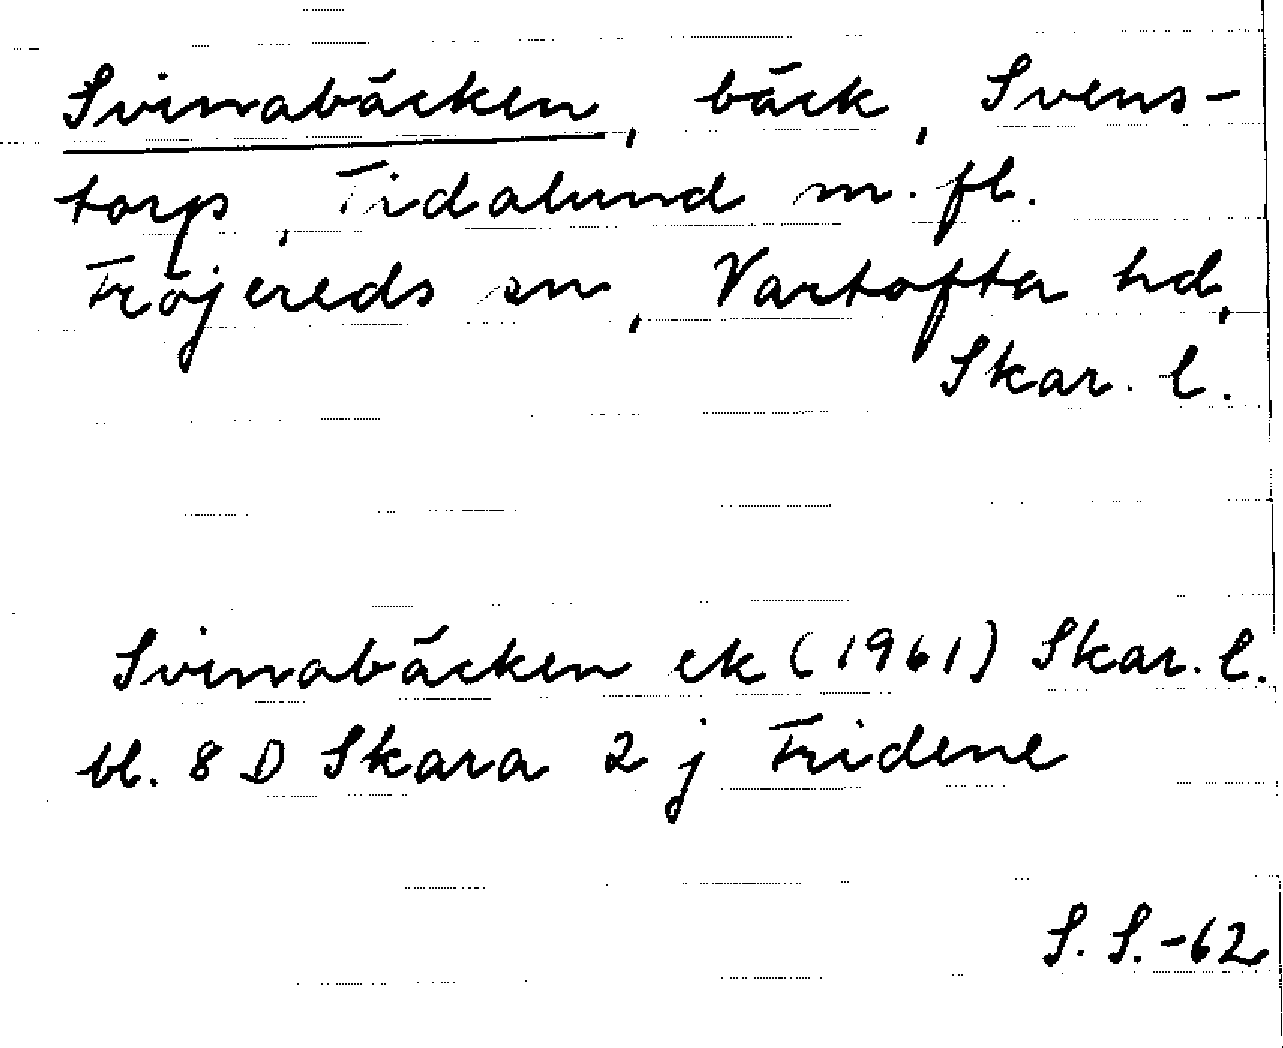 Svinabäcken, bäck, Svens-
torp, Tidalund m. fl.
Fröjereds sn, Vartofta hd,
Skar. l.
Svinabäcken ek (1961) Skar. l.
bl. 8 D Skara 2 j Fridene
S. S. -62